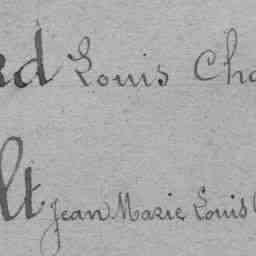 rd Louis Cha
lt Jean Marie Louis